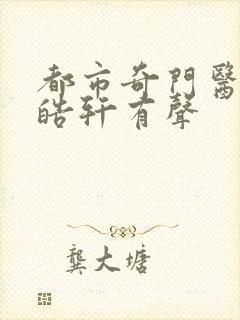 都市奇門醫
皓軒有聲
龔大塘